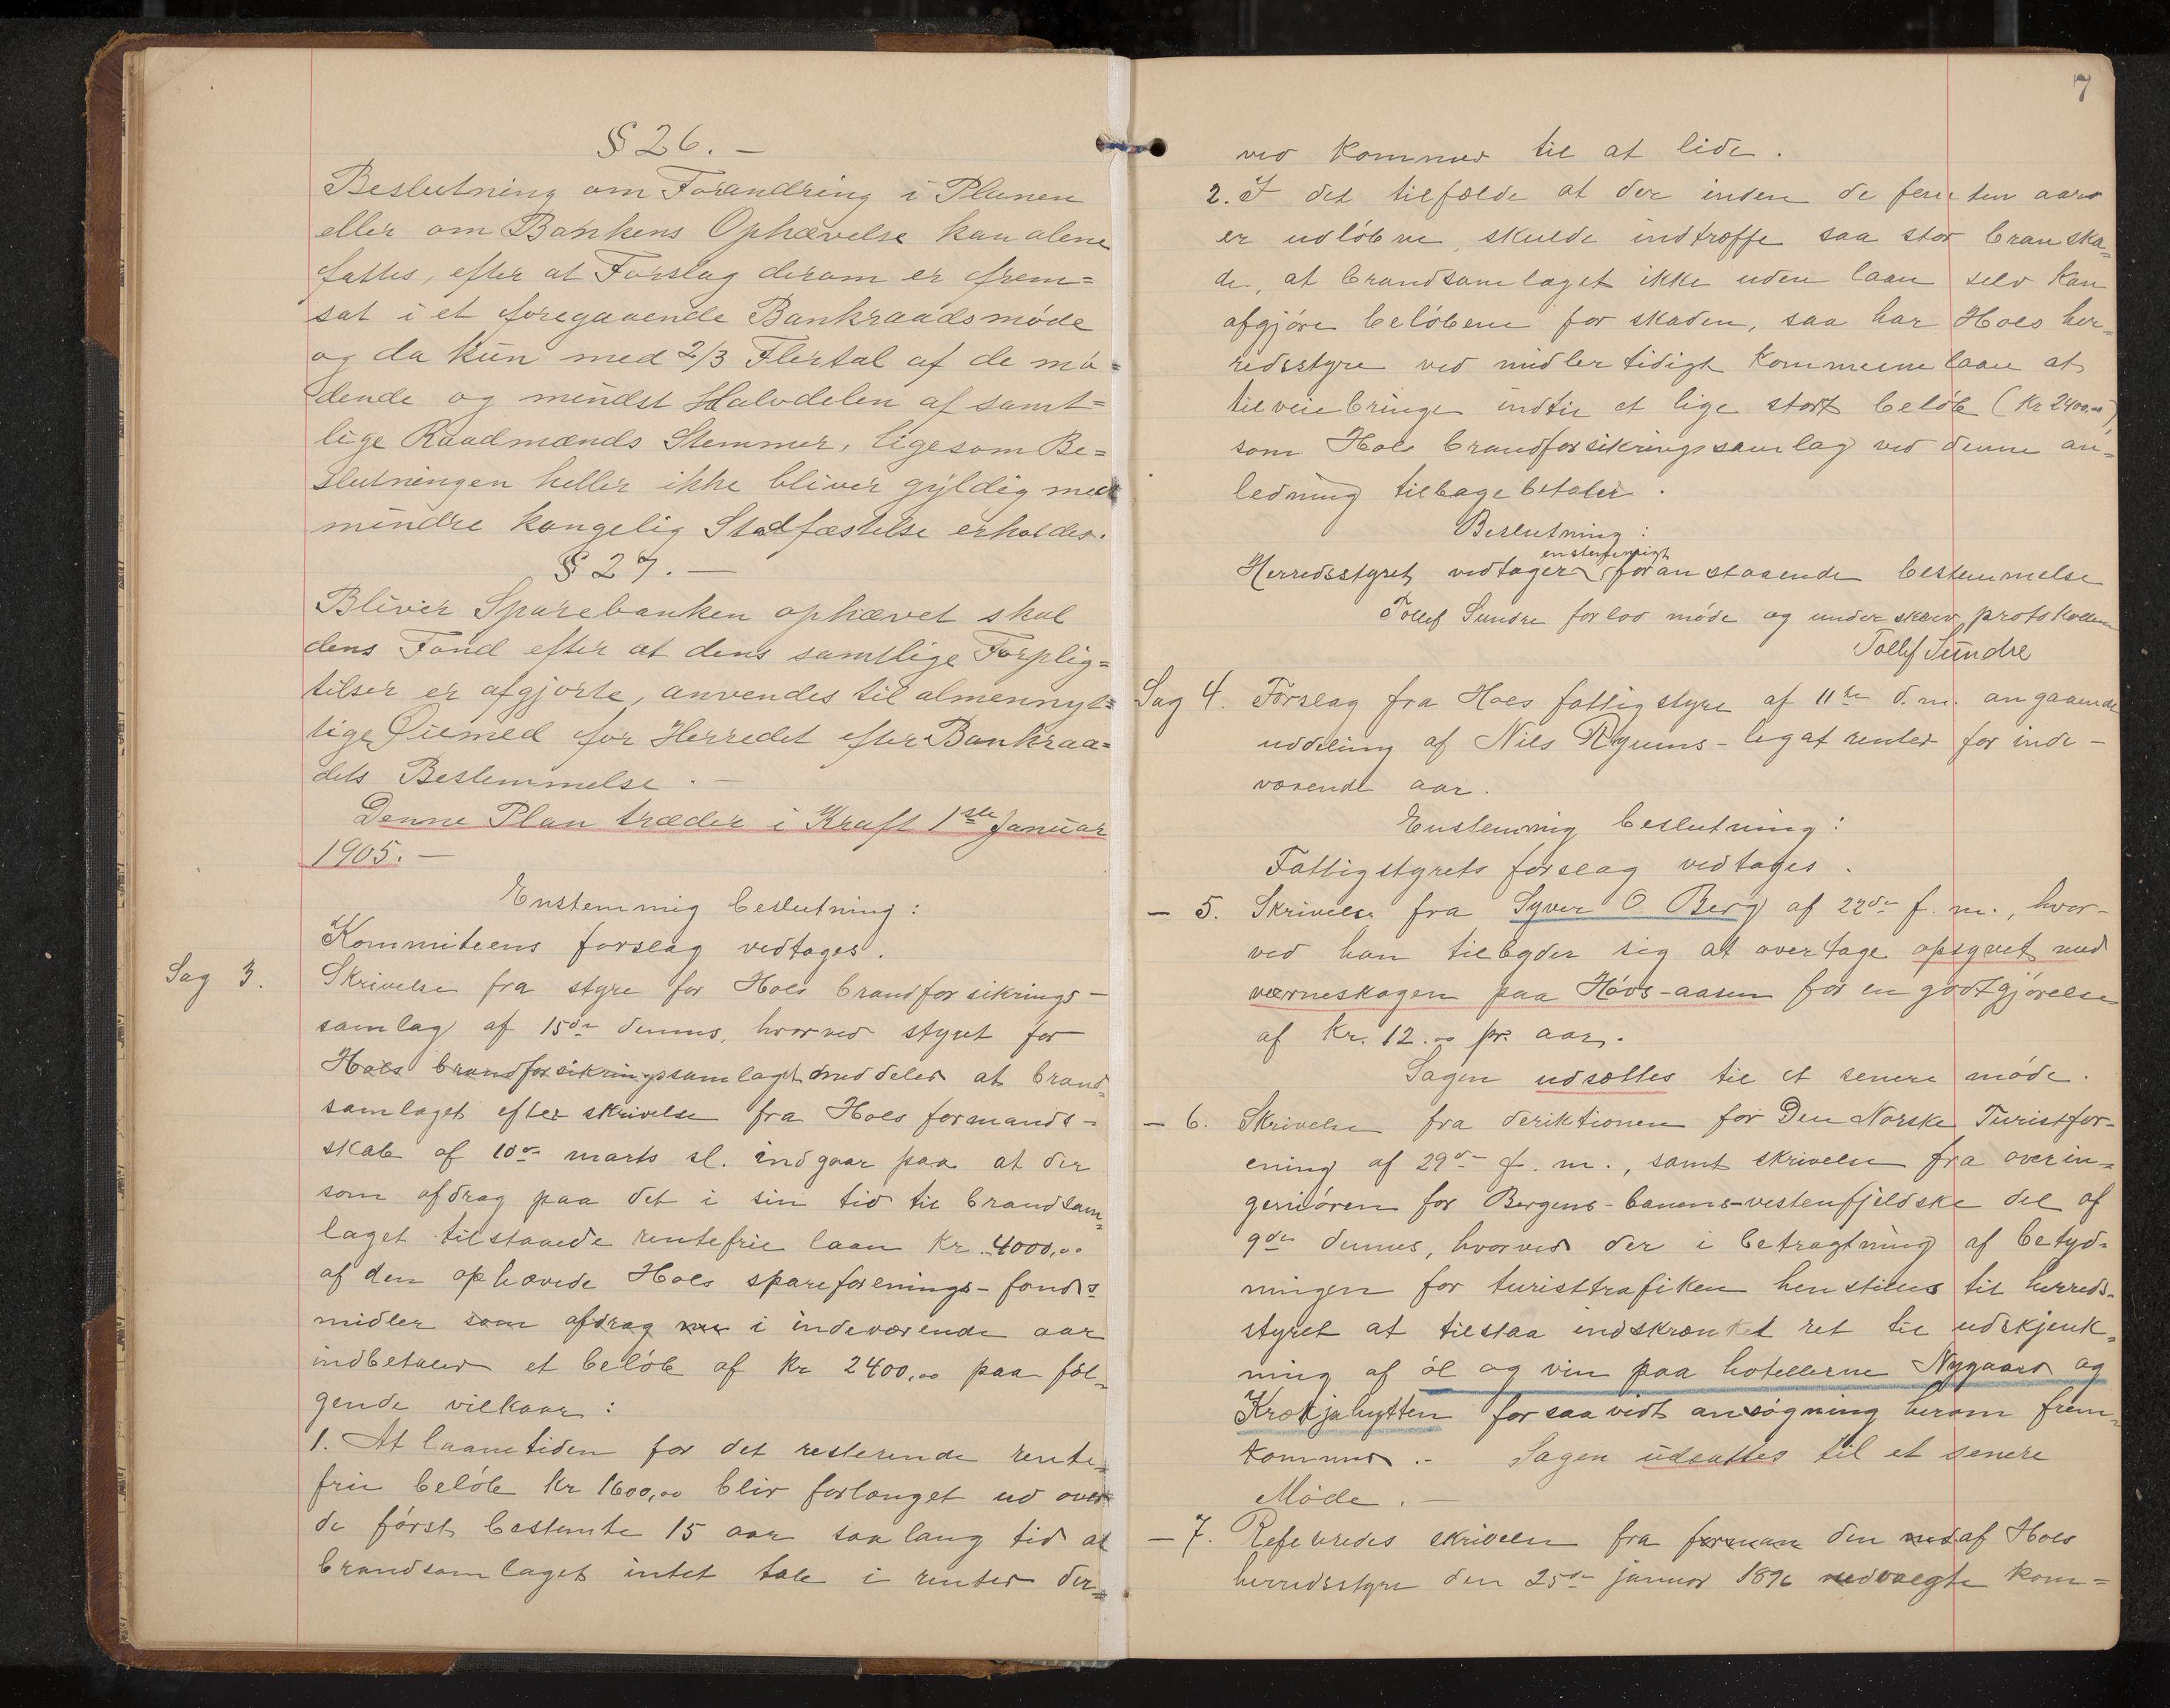 § 26. —
Beslutning om Forandring i Planen
eller om Bankens Ophævelse kan alene
fattes, efter at Forslag derom er frem=
sat i et foregaaende Bankraadsmøde
og da kun med 2/3 Flertal af de mø=
dende og mindst Halvdelen af samt=
lige Raadmænds Stemmer, ligesom Be=
slutningen heller ikke bliver gyldig med
mindre kongelig Stadfæstelse erholdes.
§ 27. —
Bliver Sparebanken ophævet skal
dens Fond efter at dens samtlige Forplig=
tilser er afgjorte, anvendes til almennyt=
tige Øiemed for Herredet efter Bankraa=
dets Bestemmelse. —
Denne Plan træder i Kraft 1ste Januar
1905. —
Enstemmig beslutning:
Kommiteens forslag vedtages.
Sag 3. Skrivelse fra styre for Hols brandforsikrings-
samlag af 15de dennes, hvorved styret for
Hols brandforsikringssamlaget meddeler at brand=
samlaget efter skrivelse fra Hols formand-
skab af 10de marts sl. indgaar paa at der
som afdrag paa det i sin tid til brandsam=
laget tilstaaede rentefrie laan Kr. 4000,00
af den ophævede Hols spareforenings-fonds=
midler som afdrag nu i indeværende aar
indbetaler et beløb af Kr 2400,00 paa føl=
gende vilkaar:
1. At laanetiden for det resterende rente=
frie beløb Kr 1600,00 blir forlænget ud over
de først bestemte 15 aar saa lang tid at
brandsamlaget intet tab i renter der=
7
ved kommer til at lide.
2. I det tilfælde at der inden de femten aar
er udløbne, skulde indtræffe saa stor branska=
de, at brandsamlaget ikke uden laan selv kan
afgjøre beløbene for skaden, saa har Hols her=
redsstyre ved midlertidigt kommunelaan at
tilveiebringe indtil et lige stort beløb (Kr 2400,00)
som Hols brandforsikringssamlag ved denne an=
ledning tilbagebetaler.
Beslutning:
enstemmigt
Herredsstyret vedtager foranstaaende bestemmelse
Tollef Sundre forlod møde og underskrev protokollen
Tollef Sundre
Sag 4. Forslag fra Hols fattigstyre af 11te d.m. angaaende
uddeling af Nils Rygums-legat renter for inde-
værende aar.
Enstemmig beslutning:
Fattigstyrets forslag vedtages.
— 5. Skrivelse fra Syver O. Berg af 22de f. m., hvor-
ved han tilbyder sig at overtage opsynet med
værneskogen paa Høvs-aasen for en godtgjørelse
af Kr. 12.00 pr. aar.
Sagen udsættes til et senere møde.
— 6. Skrivelse fra deriktionen for Den Norske Turistfor-
ening af 29de f. m., samt skrivelse fra overin=
geniøren for Bergens-banens-vestenfjeldske del af
9de dennes, hvorved der i betragtning af betyd=
ningen for turisttrafiken henstilles til herreds-
styret at tilstaa indskrænket ret til udskjenk=
ning af øl og vin paa hotellerne Nygaard og
Krækjahytten forsaavidt ansøgning herom frem=
kommer. — Sagen udsættes til et senere
Møde. —
— 7. Refereredes skrivelse fra forman den ned af Hols
herredsstyre den 25de januar 1896 nedvalgte kom=